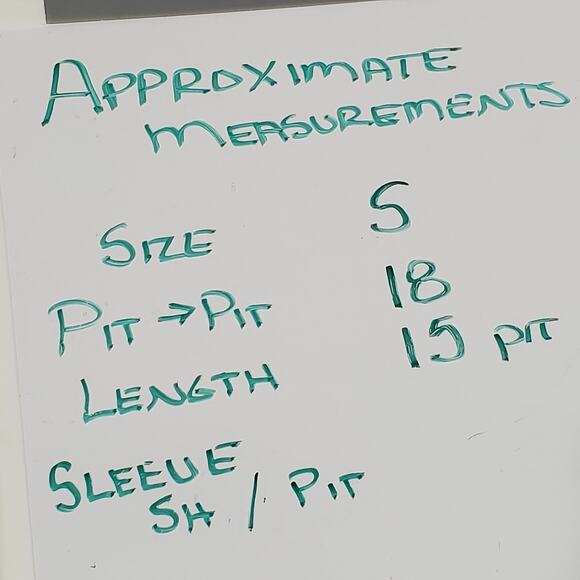 APPROXIMATE
MEASUREMENTS
SIZE S
PIT → PIT 18
LENGTH 15 PIT
SLEEVE
SH / PIT